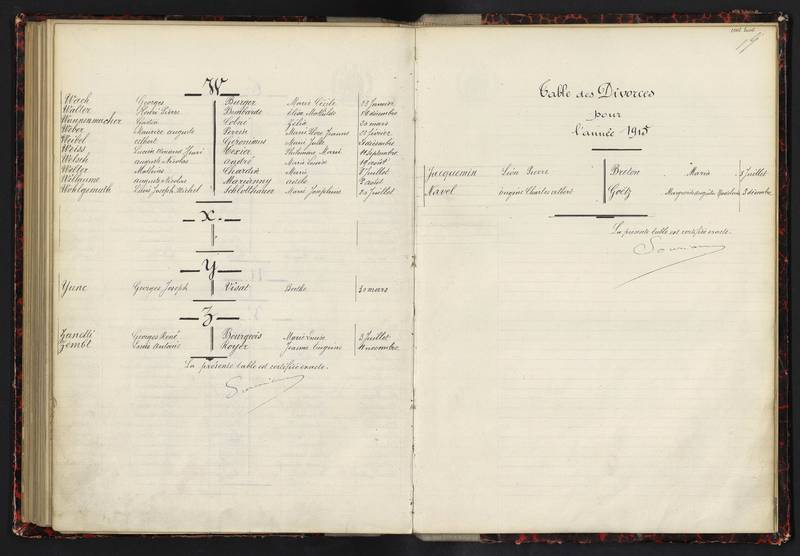 W
Wach Georges Burger Marie Cécile 23 Janvier
Walter Henri Pierre Bombarde Elise Mathilde 16 décembre
Wannenmacher Gaston Colne Zélia 20 mars
Weber Maurice auguste Perette Marie Jeanne 25 février
Weibel albert Géronimus Marie Julie décembre
Weiss Lucien Henri Texier Philomène Marie 11 Septembre
Welsch auguste Nicolas andré Marie Louise 19 août
Welter Mathias Chardin Marie 8 Juillet
Willaume auguste Nicolas Marianny adèle 2 août
Wohlgemuth Edmé Joseph Michel Schlotthauer Marie Joséphine 20 Juillet
X
Y
Yunc Georges Joseph Visat Berthe 20 mars
Z
Zanetti Georges René Bourgeois Marie Louise 3 Juillet
Zembt Louis Antoine Royer Jeanne Eugénie novembre
La présente table est certifiée exacte.
19
Table des Divorces
pour
l'année 1915
Jacquemin Léon Pierre Breton Marie 8 Juillet
Navel Eugène Charles albert Goëtz Marguerite 3 décembre
La présente table est certifiée exacte.